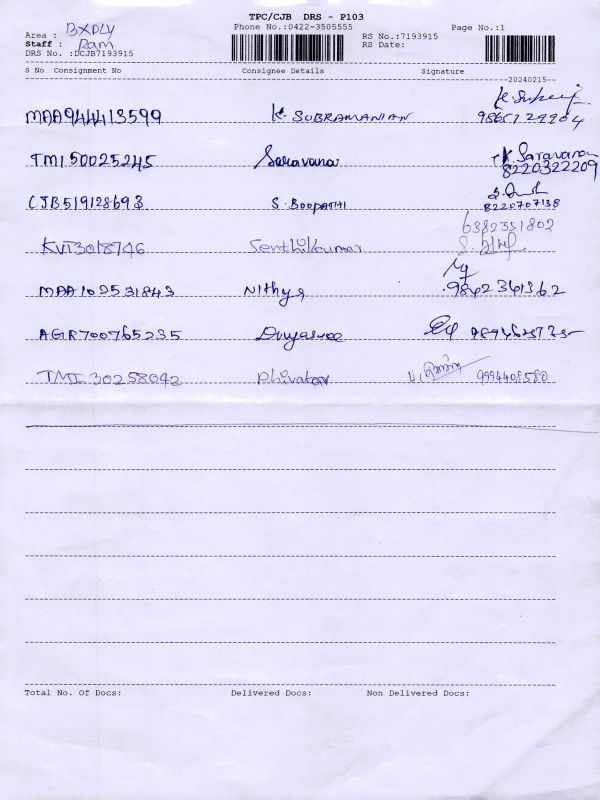 TPC/CJB DRS - P103
Phone No.:0422-3505555 Page No.:1
Area : BXPLY RS No.:7193915
Staff : Ram RS Date:
DRS No. :DCJB7193915
S No Consignment No Consignee Details Signature
20240215
MAA944413599 K. SUBRAMANIAN
TM150025245 Saravana K. Saravana 8220322209
CJB519128693 S. BOOPATHI 8220707138
6382351802
KVT3018746 Senthilkumar
MAA102531843 Nithya 9842341362
AGR700765235 Divyasree
TMI30258042 9994408580
Total No. Of Docs: Delivered Docs: Non Delivered Docs: